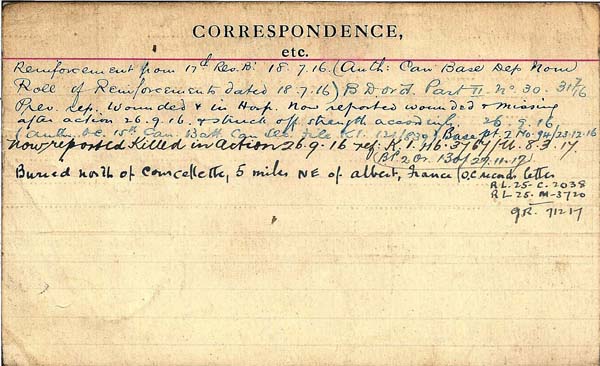 CORRESPONDENCE,
etc.
Reinforcement from 17th Res. Bn 18.7.16. (Auth: Can Base Dep Nom
Roll of Reinforcements dated 18.7.16) B.D. ord. Part II. No. 30. 31/7/16
Prev. rep. Wounded & in Hosp. Now reported wounded & missing
after action 26.9.16. & struck off strength accordingly 26.9.16.
(auth. o.c. 15th Can. Batt Can Sec. File K1. 121/830) Base pt. 2 No. 94/23-12-16
Now reported Killed in Action 26.9.16 ref: K.1.M6.3767/M.8.3.17.
(Bn 2 Or. 130/27.11.17)
Buried north of Courcellette, 5 miles NE of Albert, France (O.C. records letter
RL.25-C.2038
RL.25-M-3720
71217